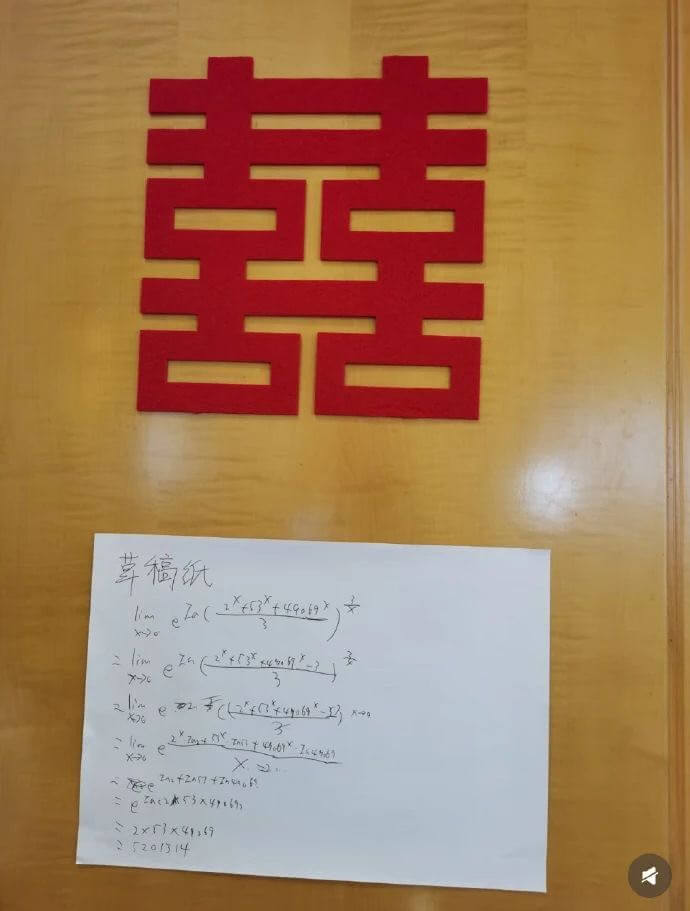 囍
草稿纸
lim x→0 e^ln((2^x+53^x+49069^x)/3)^(3/x)
= lim x→0 e^ln((2^x+53^x+49069^x-3)/3)^(3/x)
= lim x→0 e (2^x+53^x+49069^x-3)/3 x→0
= lim x→0 e^(2^x·ln2+53^x·ln53+49069^x·ln49069)/x
= e^ln2+ln53+ln49069
= e^ln(2×53×49069)
= 2×53×49069
= 5201314